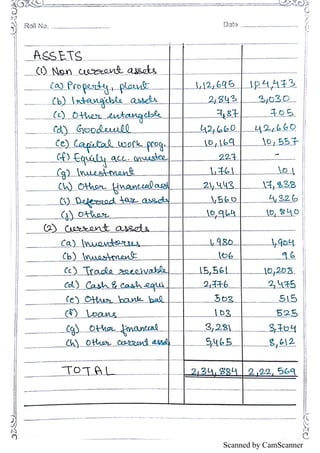 Roll No. Date
ASSETS
(1) Non current assets
(a) Property, plant 1,12,695 1,04,473
(b) Intangible assets 2,843 3,030
(c) Other intangible 7,87 705
(d) Goodwill 42,660 42,660
(e) Capital work prog. 10,169 10,557
(f) Equity acc. investee 227 -
(g) Investment 1,761 101
(h) Other financial asst 21,443 17,838
(i) Deferred tax assets 1,560 4,326
(j) Other 10,964 10,840
(2) Current assets
(a) Inventories 1,980 1,904
(b) Investment 106 96
(c) Trade receivable 15,561 10,208
(d) Cash & cash equi 2,776 2,475
(e) Other bank bal 303 515
(f) Loans 103 525
(g) Other financial 3,281 3,704
(h) Other current asse 5,465 8,612
TOTAL 2,34,884 2,22,569
Scanned by CamScanner